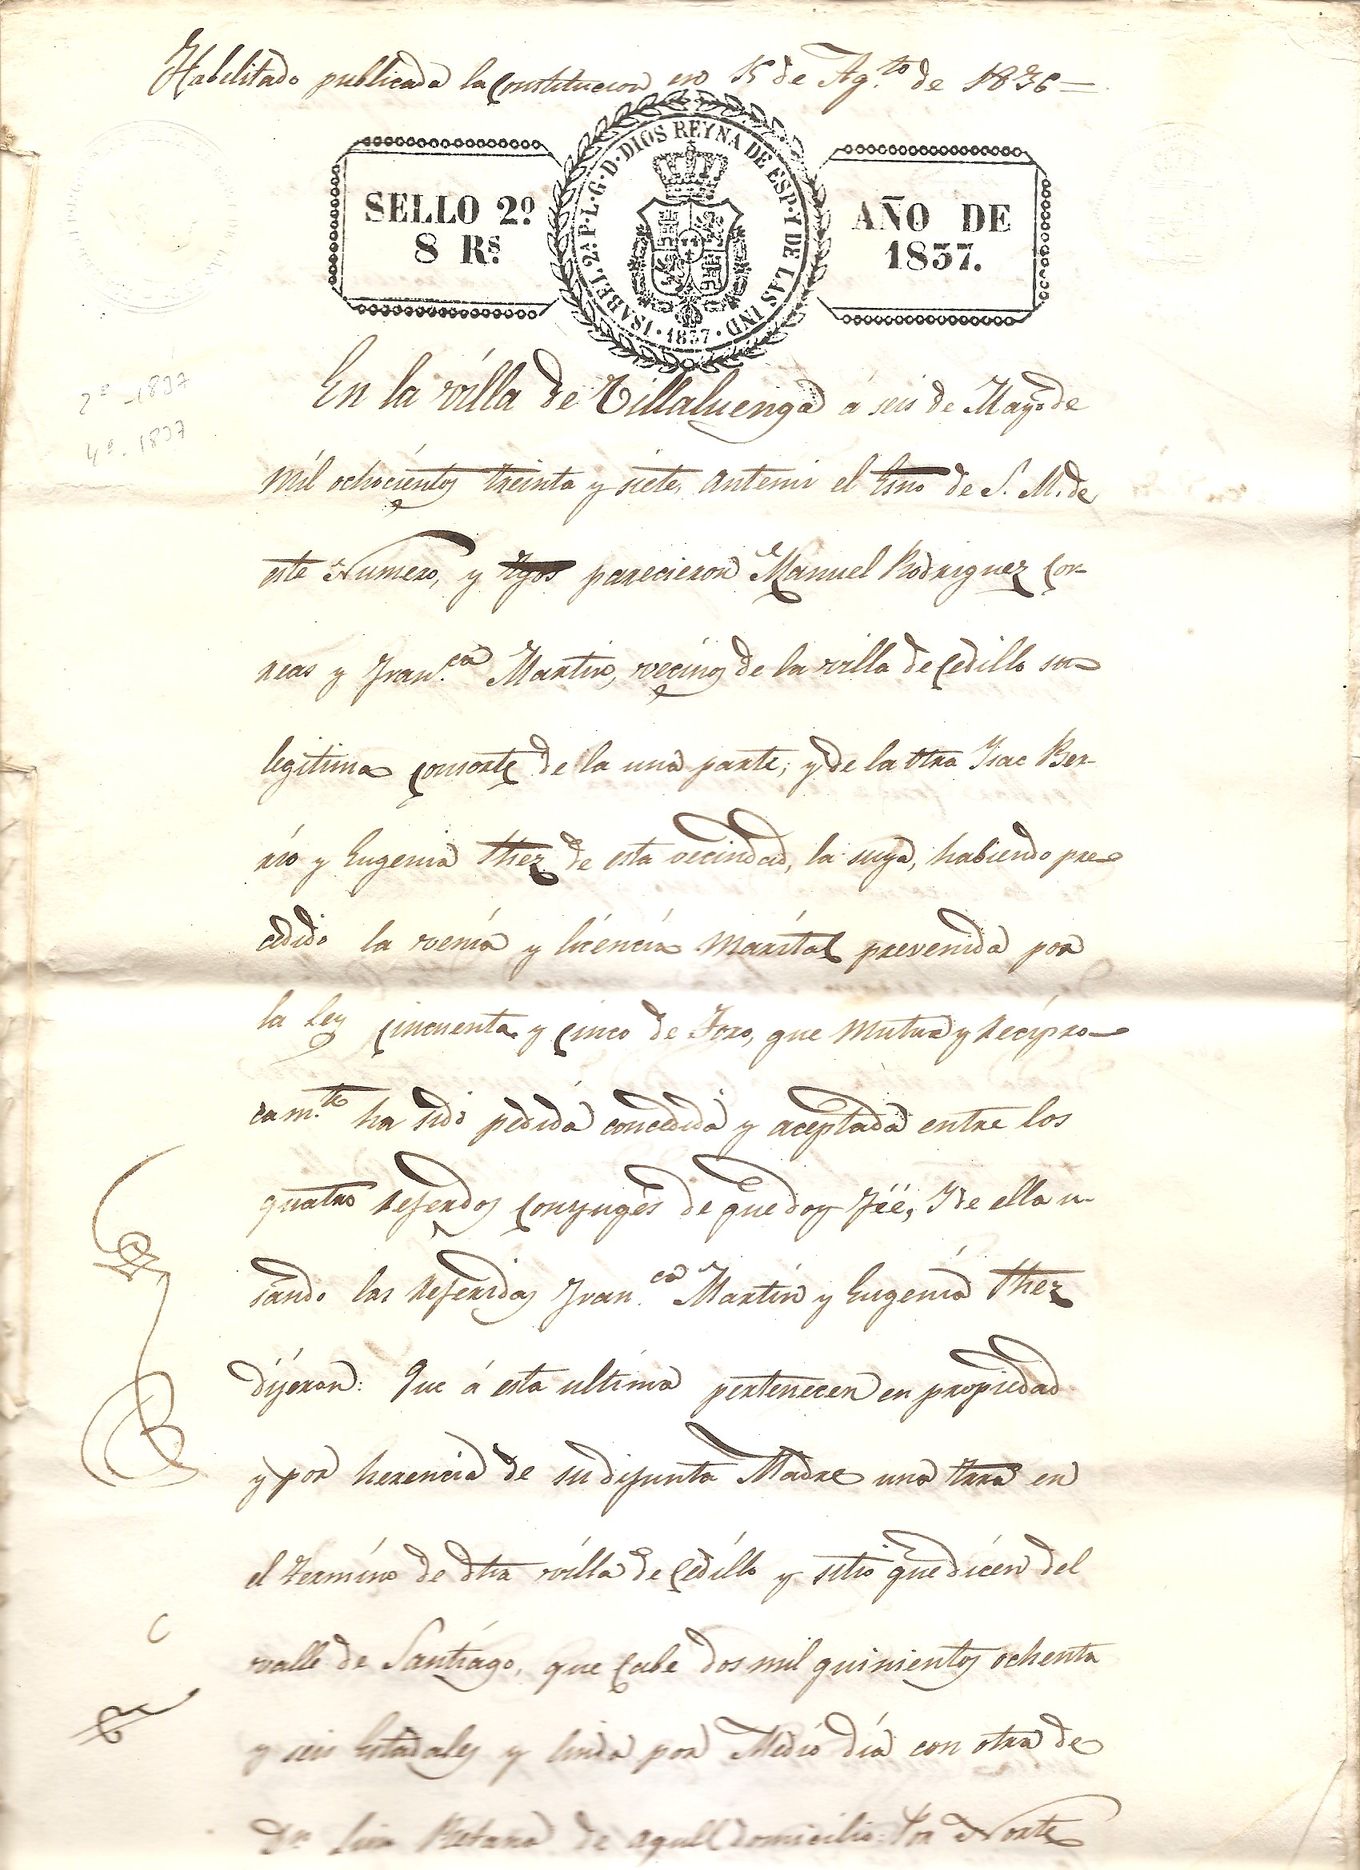 Habilitado publicada la Constitucion en 15 de Ag.to de 1836 =
SELLO 2º
8 Rs.
ISABEL 2.ª P. L. G. D. DIOS REYNA DE ESP. Y DE LAS IND.
1837
AÑO DE
1837.
2º - 1837
4º - 1837
En la villa de Villaluenga á seis de Mayo de
mil ochocientos treinta y siete, antemi el Esno de S. M. de
este Numero, y tgos parecieron Manuel Rodriguez Cor-
reas y Fran.ca Martin, vecinos de la villa de Cedillo su
legitima consorte de la una parte; y de la otra Isac Ber-
rio y Eugenia Fhez de esta vecindad, la suya, habiendo pre-
cedido la venia y licencia Marital prevenida por
la Ley cincuenta y cinco de Toro, que mutua y recipro-
cam.te ha sido pedida concedida y aceptada entre los
quatro referidos conyuges de que doy fée, Y de ella u-
sando las referidas Fran.ca Martin y Eugenia Fhez
dijeron: Que á esta ultima pertenecen en propiedad
y por herencia de su difunta Madre una trra en
el termino de dha villa de Cedillo y sitio que dicen del
valle de Santiago, que cabe dos mil quinientos ochenta
y seis Estadales y linda por Medio dia con otra de
Dn Luis Retana de aquel domicilio: Por Norte